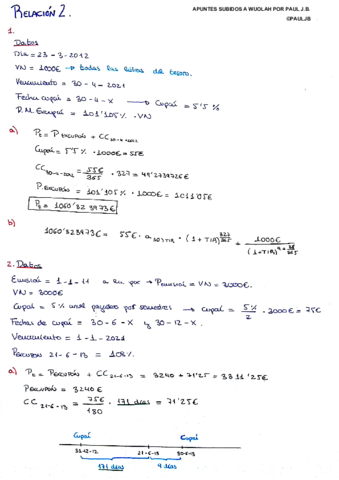 APUNTES SUBIDOS A WUOLAH POR PAUL J.B.
@PAULJB
RELACIÓN 2.
1.
Datos
Día = 23 - 3 - 2012
VN = 1000€ → todas las letras del tesoro.
Vencimiento = 30 - 4 - 2021
Fecha cupón = 30 - 4 - X → Cupón = 5'5 %
P.M. Excupón = 101'105 % · VN
a) Pt = P excupón + CC
Cupón = 5'5 % · 1000€ = 55€
CC = 55€ / 365 · 327 = 49'273972€
P. Excupón = 101'105 % · 1000€ = 1011'05€
Pt = 1060'323973€
b)
1060'323973€ = 55€ · a · (1 + TIR) + 1000€ / (1 + TIR)
2. Datos
Emisión = 1-1-11 a la par → Pemisión = VN = 3000€.
VN = 3000€
Cupón = 5 % anual pagadero por semestres → Cupón = 5% / 2 · 3000€ = 75€
Fechas de cupón = 30-6-X y 30-12-X.
Vencimiento = 1-1-2021
Pexcupón 21-6-13 = 108%.
a) Pt = Pexcupón + CC 21-6-13 = 3240 + 71'25 = 3311'25€
Pexcupón = 3240€
CC 21-6-13 = 75€ / 180 · 171 días = 71'25€
Cupón Cupón
21-6-13 30-6-13
171 días 9 días